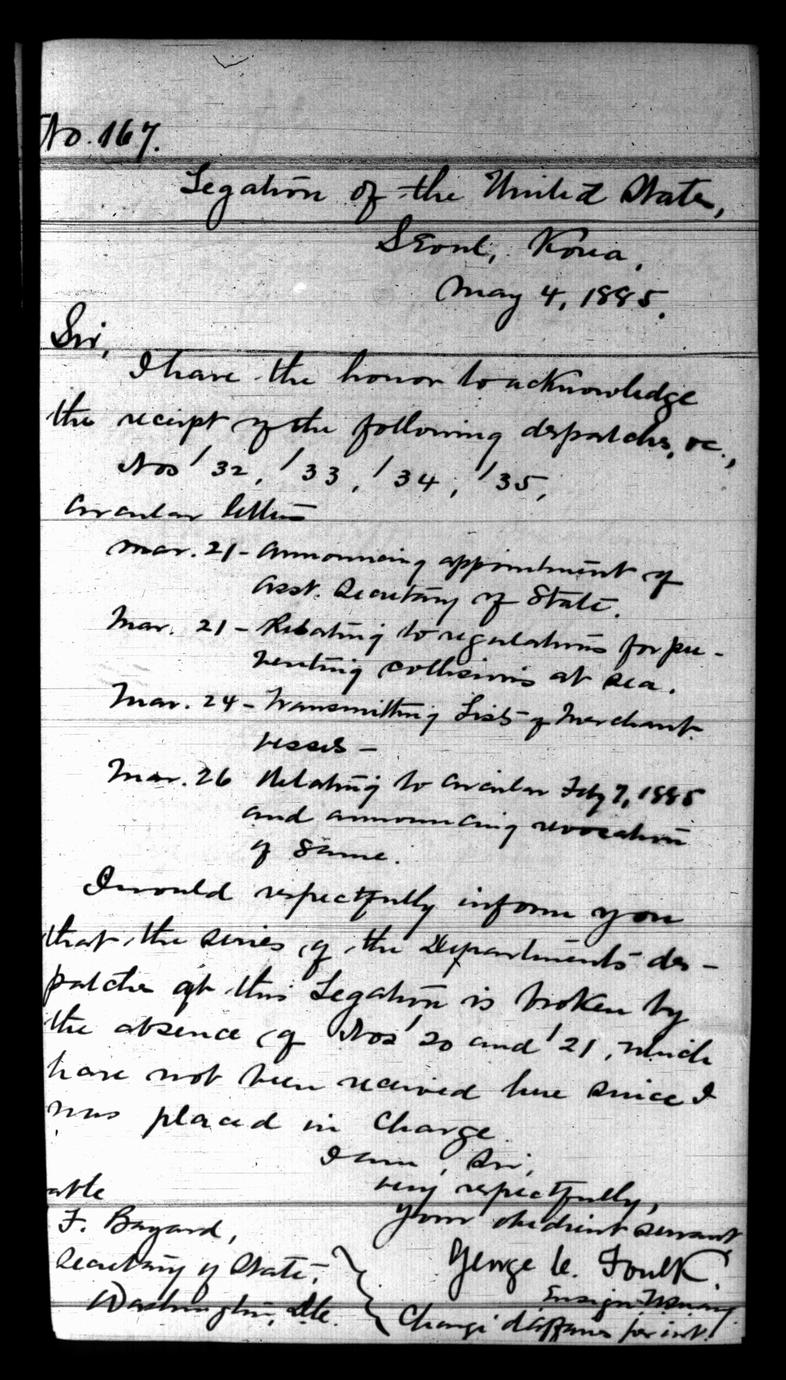 No. 167.
Legation of the United States,
Seoul, Korea,
May 4, 1885.
Sir,
I have the honor to acknowledge
the receipt of the following despatches, &c.,
Nos 132, 133, 134, 135,
Circular letters
Mar. 21 - Announcing appointment of
Asst. Secretary of State.
Mar. 21 - Relating to regulations for pre-
venting collisions at sea.
Mar. 24 - Transmitting Lists of Merchant
vessels -
Mar. 26 Relating to circular Feby 7, 1885
and announcing revocation
of same.
I would respectfully inform you
that the series of the Department's des-
patches at this Legation is broken by
the absence of Nos 120 and 121, which
have not been received here since I
was placed in charge.
I am, Sir,
very respectfully,
your obedient servant
George C. Foulk.
Ensign U.S. Navy.
Chargé d'affaires per int.
able
F. Bayard,
Secretary of State,
Washington, D.C.